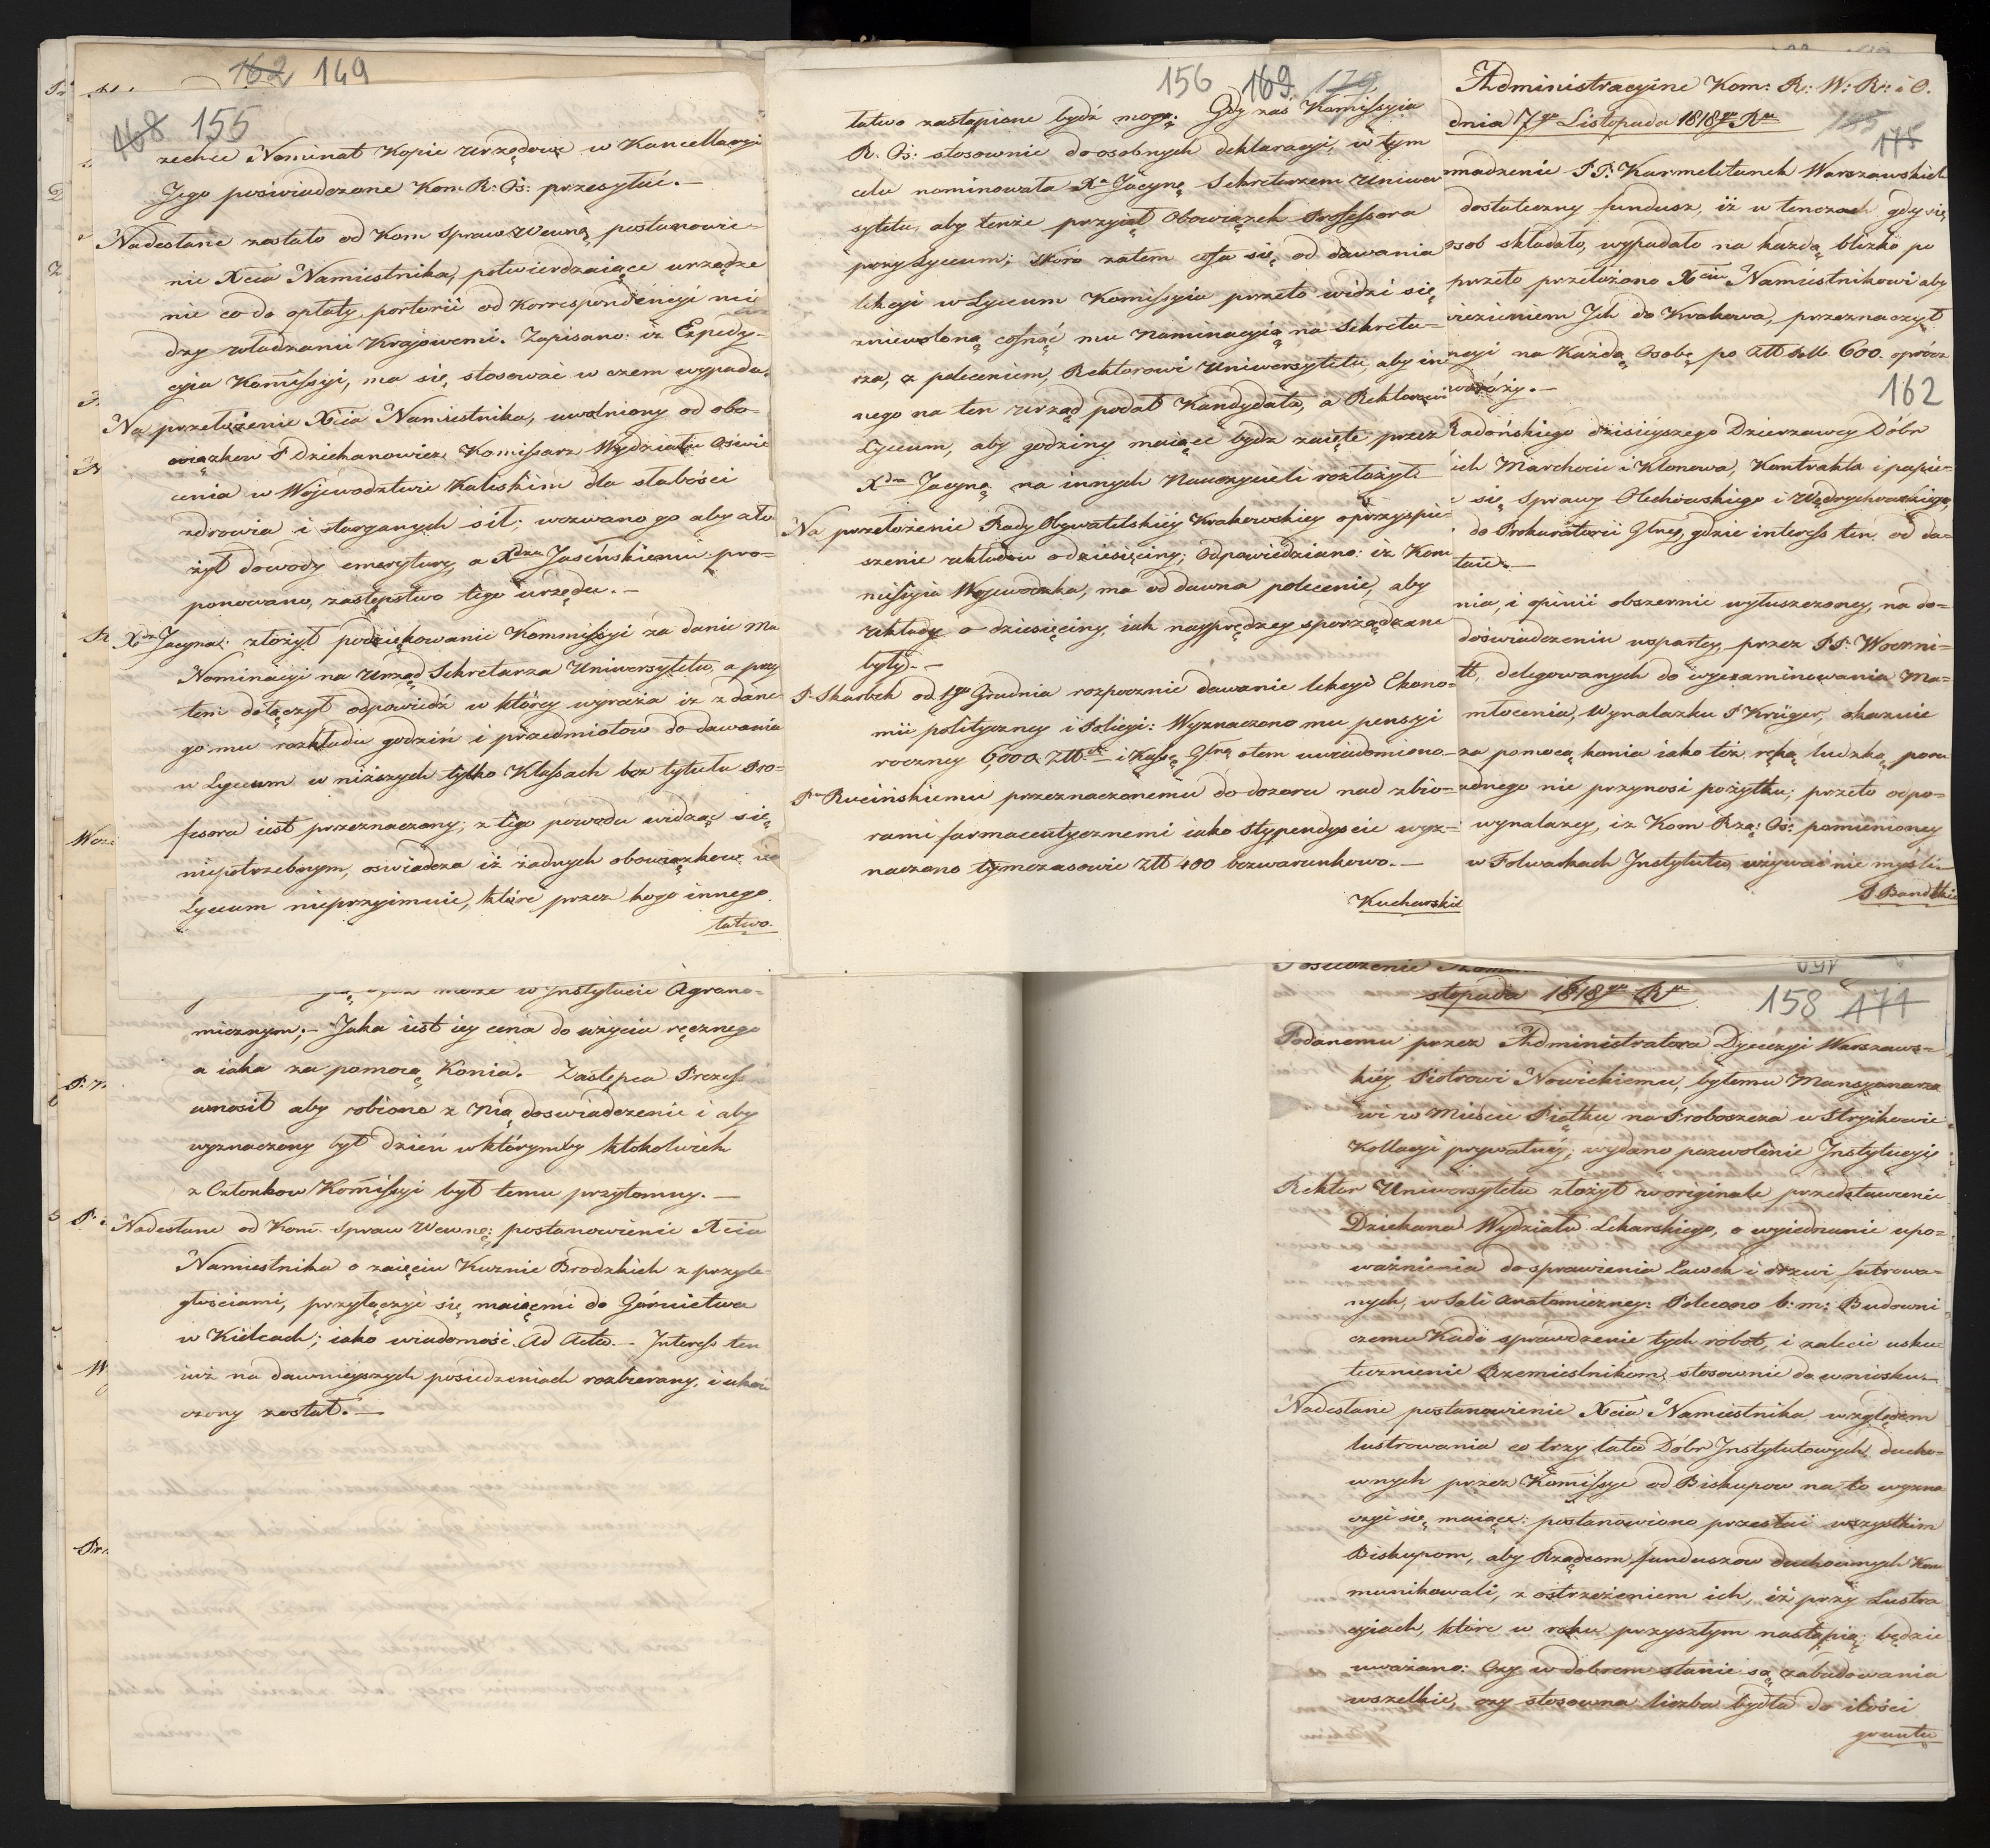 162 149
168 155
zechce Nominat Kopie urzędowe w Kancellaryi
Jego poświadczone Kom: R: Oś: przesyłać. —
Nadesłane zostało od Kom Spraw Wewnę, postanowie-
nie Xcia Namiestnika, potwierdzaiące urządze
nie co do opłaty portorii od Korrespondencyi mię
dzy władzami Krajowemi. Zapisano: iż Expedy-
cyia Komissyi, ma się stosować w czem wypada.
Na przełożenie Xcia Namiestnika, uwolniony od obo-
wiązkow P Dziekanowicz Komissarz Wydziału Oświe
cenia w Woiewodztwie Kaliskim dla słabości
zdrowia i starganych sił; wezwano go aby zło
żył dowody emerytury, a Xdzu Jasińskiemu pro-
ponowano, zastępstwo tego urzędu. —
Xdz Jacyna: złożył podziękowanie Kommissyi za danie Mu
Nominacyi na Urząd Sekretarza Uniwersytetu, a przy
tem dołączył odpowiedź w którey wyraża iż z dane
go mu rozkładu godzin i przedmiotow do dawania
w Lyceum w niższych tylko Klassach bez tytułu Pro-
fesora iest przeznaczony; z tego powodu widząc się
niepotrzebnym, oświadcza iż żadnych obowiązkow w
Lyceum nieprzyimuie, które przez kogo innego
łatwo.
156 169. 179
łatwo zastąpione bydź mogą. Gdy zaś Komissyia
R. Oś: stosownie do osobnych deklaracyi, w tym
celu nominowała Xa Jacynę Sekretarzem Uniwer
sytetu, aby tenże przyiął Obowiązek Professora
przy Lyceum; skoro zatem cofa się od dawania
lekcyi w Lyceum Komissyia przeto widzi się
zniewoloną cofnąć mu Nominacyią na Sekreta-
rza, z poleceniem, Rektorowi Uniwersytetu, aby in
nego na ten urząd podał Kandydata, a Rektorowi
Lyceum, aby godziny maiące bydz zaięte przez
Xdza Jacynę na innych Nauczycieli rozłożył.
Na przełożenie Rady Obywatelskiey Krakowskiey o przyspie-
szenie układow o dziesięciny; Odpowiedziano: iż Kom
missyia Wojewodzka, ma od dawna polecenie, aby
układy o dziesięciny, iak nayprędzey sporządzane
były. —
P. Skarbek od 1go Grudnia rozpocznie dawanie lekcyi Ekono-
mii polityczney i Policyi: Wyznaczono mu pensyi
roczney 6,000 Złł i Kassę Głną o tem uwiadomiono.—
Pu Rucińskiemu przeznaczonemu do dozoru nad zbio-
rami farmaceutycznemi iako stypendyście wyz-
naczono tymczasowie Złł 400 bezwarunkowo. —
Kucharski
Administracyine Kom: R: W: R: i O.
dnia 7go Listopada 1818go Ru
185 175
madzenie PP: Karmelitanek Warszawskich
dostateczny fundusz, iż w tenczas gdy się
osob składało, wypadało na każdą blizko po
przeto przełożono Xciu Namiestnikowi aby
wiezieniem Jch do Krakowa, przeznaczył
nayi na Każdą Osobę po Złł 600. oprócz
podróży. —
162
Radońskiego dzisieyszego Dzierzawcy Dóbr
ich Marchocic i Klonowa, Kontrakta i papie-
się sprawy Olechowskiego i Wędrychowskiego,
do Prokuratorii Głney, gdzie interess ten, od da-
taie. —
nia, i opinii obszernie wyłuszczoney, na do-
doświadczeniu wspartey, przez PP: Woerni-
tt, delegowanych do wyexaminowania Ma-
młocenia, Wynalazku P Krüger, okazuie
za pomocą konia iako też ręką ludzką, poru
żadnego nie przynosi pożytku; przeto odpo-
wynalazcy, iż Kom Rzą: Oś: pomienioney
w Folwarkach Instytutu, używać nie myśli. —
P Bandtkie
może w Instytucie Agrono-
micznym; — Jaka iest iey cena do użycia ręcznego
a iaka za pomocą Konia. — Zastępca Prezessa
wnosił aby robiono z Nią doświadczenie i aby
wyznaczony był dzień w którymby ktokolwiek
z Członkow Komissyi był temu przytomny. —
Nadesłane od Kom. Spraw Wewnę: postanowienie Xcia
Namiestnika o zaięciu Kuznic Brodzkich z przyle-
głościami, przyłączyć się maiącemi do Górnictwa
w Kielcach; iako wiadomość Ad Acta. — Interess ten
iuż na dawnieyszych posiedzeniach rozbierany, i ukoń
czony został. —
stopada 1818go Ru
158 171
Podanemu przez Administratora Dyecezyi Warszaws-
kiéy, Piotrowi Nowickiemu, byłemu Mansyonarzo
wi w Mieście Piątku na Proboszcza w Strykowie
Kollacyi prywatnéy; wydano pozwolenie Jnstytucyi.
Rektor Uniwersytetu złożył w originale przedstawienie
Dziekana Wydziału Lekarskiego, o wyiednanie upo-
ważnienia do sprawienia Ławek i drzwi futrowa-
nych, w Sali Anatomiczney: Polecono b: m: Budowni
czemu Kado sprawdzenie tych robot, i zalecić usku-
tecznienie Rzemieslnikom, stosownie do wniosku. —
Nadesłane postanowienie Xcia Namiestnika względem
lustrowania co trzy lata Dóbr Jnstytutowych ducho-
wnych przez Komissye od Biskupow na to wyzna
czyć się maiące: postanowiono przesłać wszystkim
Biskupom, aby Rządcom funduszow duchownych Kom
munikowali, z ostrzeżeniem ich, iż przy Lustra
cyiach, które w roku przyszłym nastąpią będzie
uważano: Czy w dobrem stanie są zabudowania
wszelkie, czy stosowna liczba bydła do ilości
gruntu